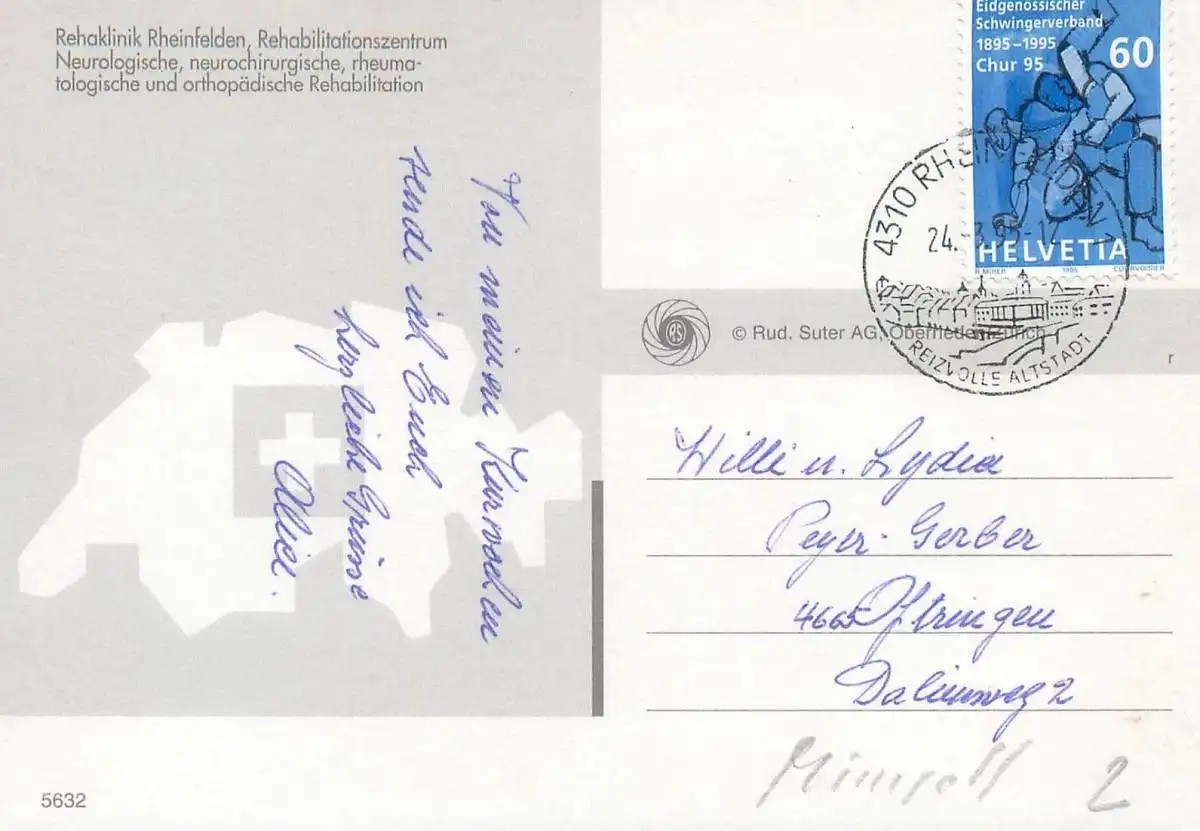 Rehaklinik Rheinfelden, Rehabilitationszentrum
Neurologische, neurochirurgische, rheuma-
tologische und orthopädische Rehabilitation
Eidgenössischer
Schwingerverband
1895–1995
Chur 95
60
HELVETIA
R. MIRER 1995 COURVOISIER
4310 RHEINFELDEN
24.-3.95-1
REIZVOLLE ALTSTADT
RS
© Rud. Suter AG, Oberrieden-Zürich
r
Von meinen Kurwochen
sende ich Euch
herzliche Grüsse
Alice.
Willi u. Lydia
Peyer-Gerber
4665 Oftringen
2
2
5632